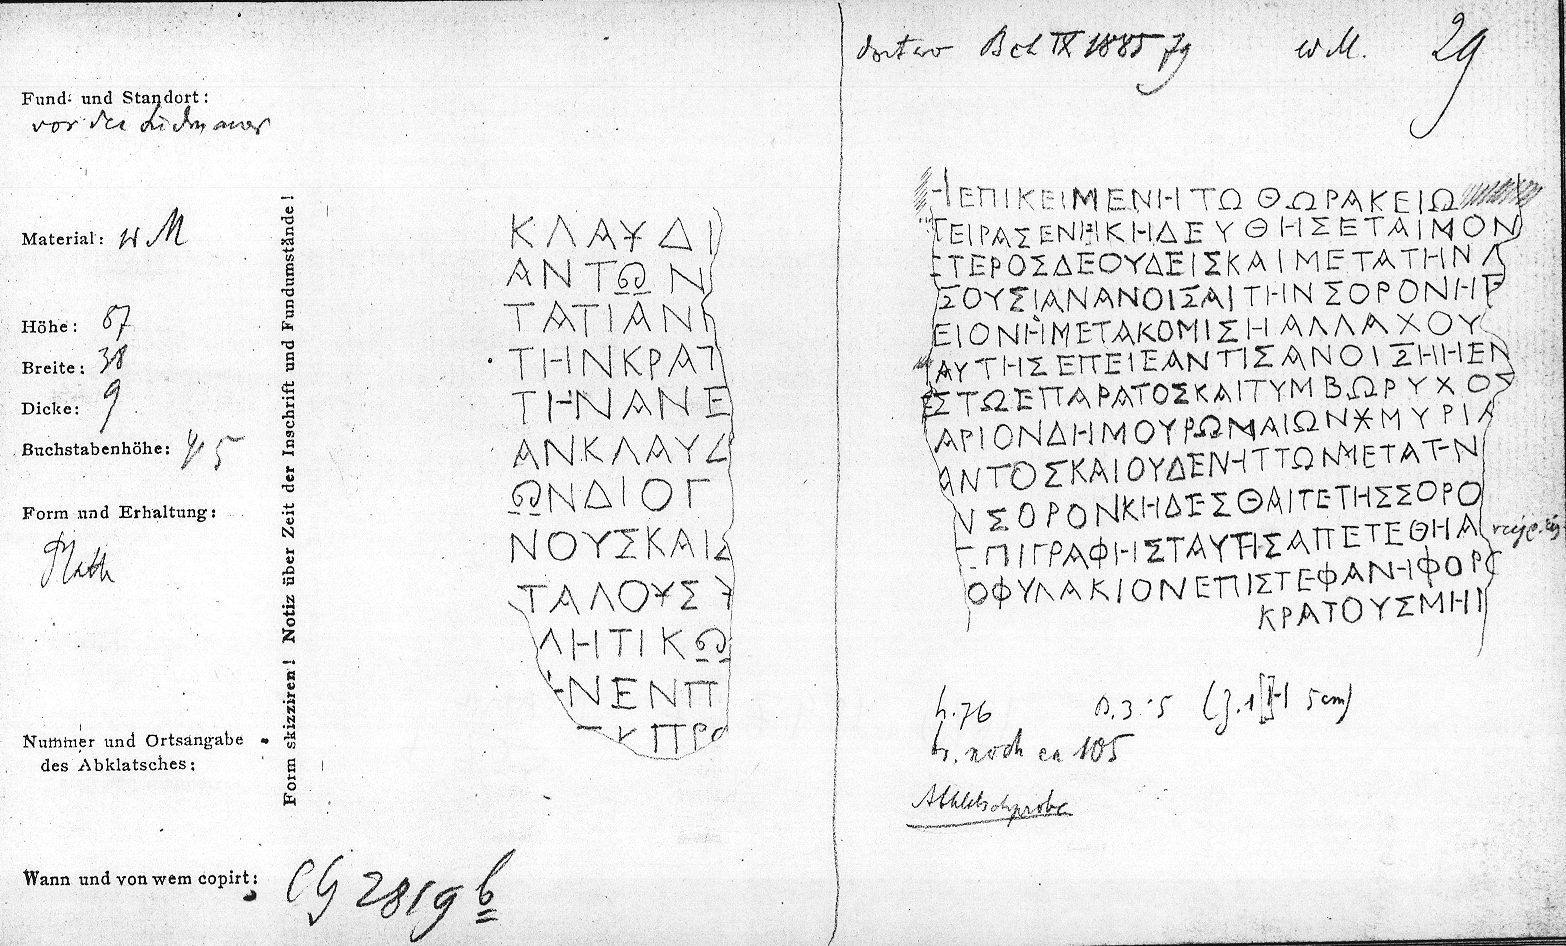 Fund- und Standort:
vor der Südmauer
Material: w M
Höhe: 67
Breite: 38
Dicke: 9
Buchstabenhöhe: 4,5
Form und Erhaltung:
Platte
Nummer und Ortsangabe
des Abklatsches:
Wann und von wem copirt:
CIG 2819 b
Form skizziren! Notiz über Zeit der Inschrift und Fundumstände!
ΚΛΑΥΔΙ
ΑΝΤΩΝ
ΤΑΤΙΑΝΗ
ΤΗΝΚΡΑΤ
ΤΗΝΑΝΕ
ΑΝΚΛΑΥΔ
ΩΝΔΙΟΓ
ΝΟΥΣΚΑΙΔ
ΤΑΛΟΥΣΥ
ΛΗΤΙΚΩ
ΗΝΕΝΠ
ΚΠΡΟ
BCH IX 1885 79 w M. 29
ΗΕΠΙΚΕΙΜΕΝΗΤΩΘΩΡΑΚΕΙΩ
ΤΕΙΡΑΣΕΝΗΚΗΔΕΥΘΗΣΕΤΑΙΜΟΝ
ΕΤΕΡΟΣΔΕΟΥΔΕΙΣΚΑΙΜΕΤΑΤΗΝΛ
ΞΟΥΣΙΑΝΑΝΟΙΞΑΙΤΗΝΣΟΡΟΝΗΕ
ΕΙΟΝΗΜΕΤΑΚΟΜΙΣΗΑΛΛΑΧΟΥ
ΑΥΤΗΣΕΠΕΙΕΑΝΤΙΣΑΝΟΙΞΗΗΕΝ
ΕΣΤΩΕΠΑΡΑΤΟΣΚΑΙΤΥΜΒΩΡΥΧΟΣ
ΑΡΙΟΝΔΗΜΟΥΡΩΜΑΙΩΝ𐆖ΜΥΡΙΑ
ΑΝΤΟΣΚΑΙΟΥΔΕΝΗΤΤΩΝΜΕΤΑΤΗΝ
ΝΣΟΡΟΝΚΗΔΕΣΘΑΙΤΕΤΗΣΣΟΡΟ
ΕΠΙΓΡΑΦΗΣΤΑΥΤΗΣΑΠΕΤΕΘΗΑ
ΟΦΥΛΑΚΙΟΝΕΠΙΣΤΕΦΑΝΗΦΟΡΟ
ΚΡΑΤΟΥΣΜΗΙ
h. 76 B. 3·5 (Z. 1 H 5 cm)
br. noch ca 105
Abklatschprobe